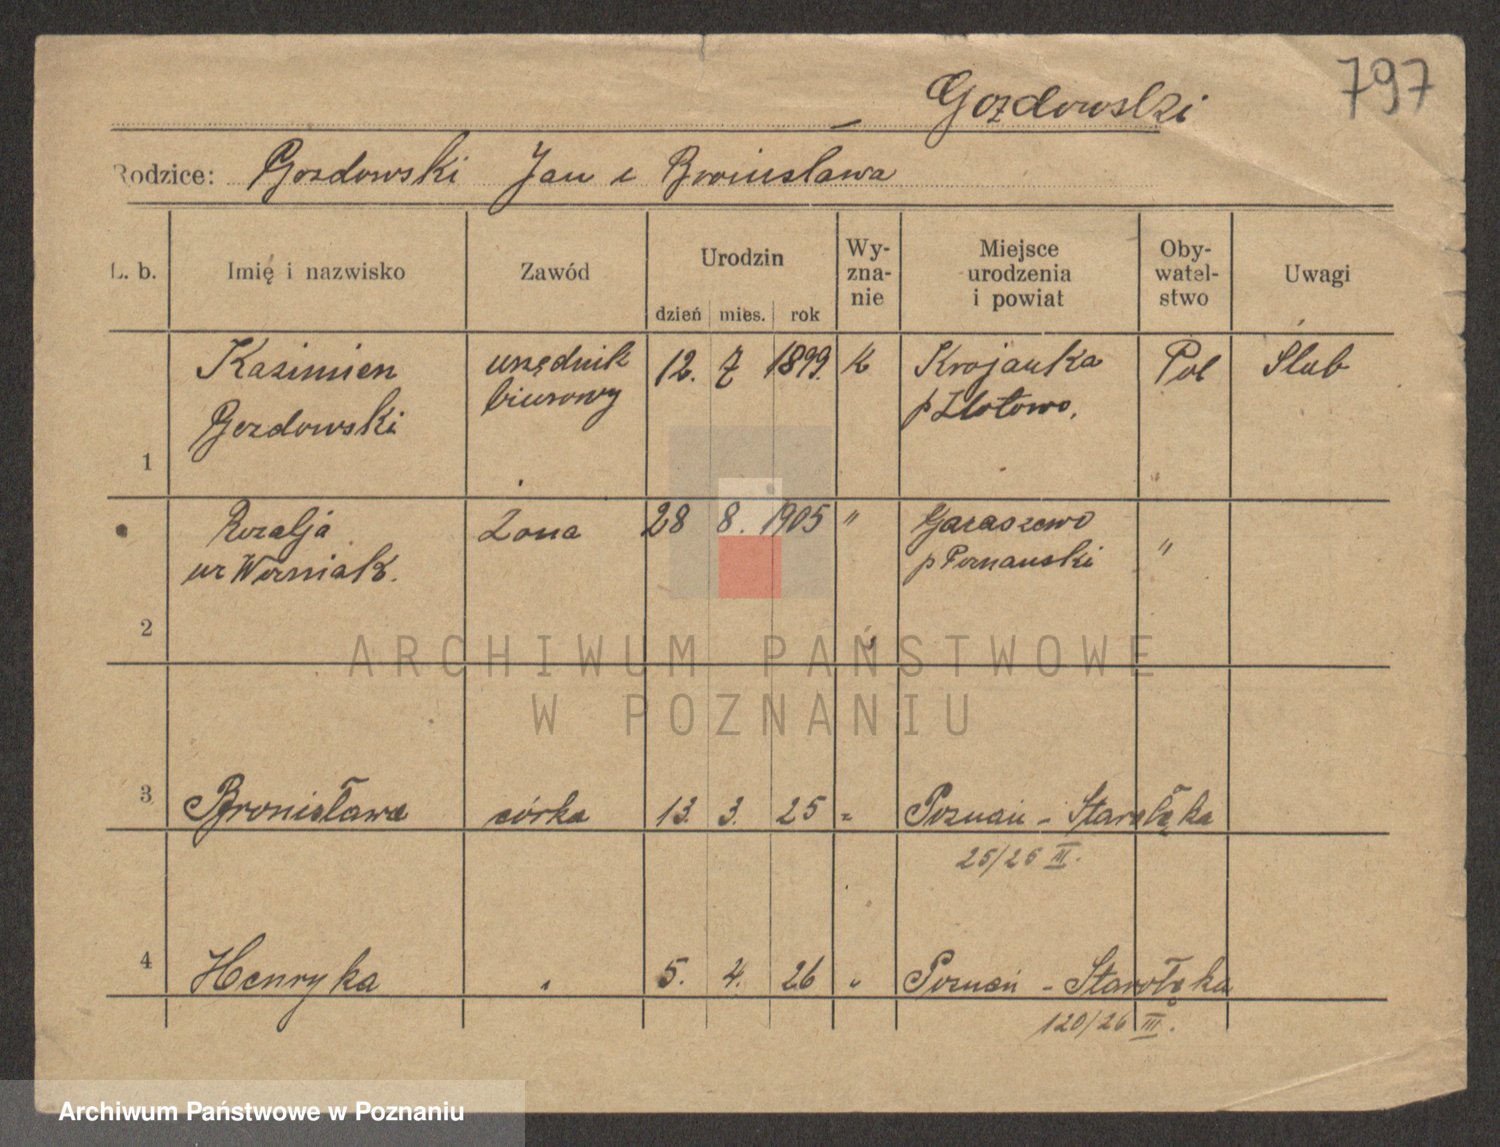 797
Gozdowski
Rodzice: Gozdowski Jan i Bronisława
L. b.
Imię i nazwisko
Zawód
Urodzin
dzień mies. rok
Wy-
zna-
nie
Miejsce
urodzenia
i powiat
Oby-
watel-
stwo
Uwagi
1
Kazimierz
Gozdowski
urzędnik
biurowy
12. 7 1899.
k
Krojanka
p Złotowo.
Pol
Slub
2
Rozalja
ur Woźniak.
Żona
28 8. 1905
"
Garaszewo
p Poznański
"
3 Bronisława córka 13. 3. 25 " Poznań - Starołęka
25/26 III.
4 Henryka " 5. 4. 26 " Poznań - Starołęka
120/26 III.
ARCHIWUM PAŃSTWOWE
W POZNANIU
Archiwum Państwowe w Poznaniu